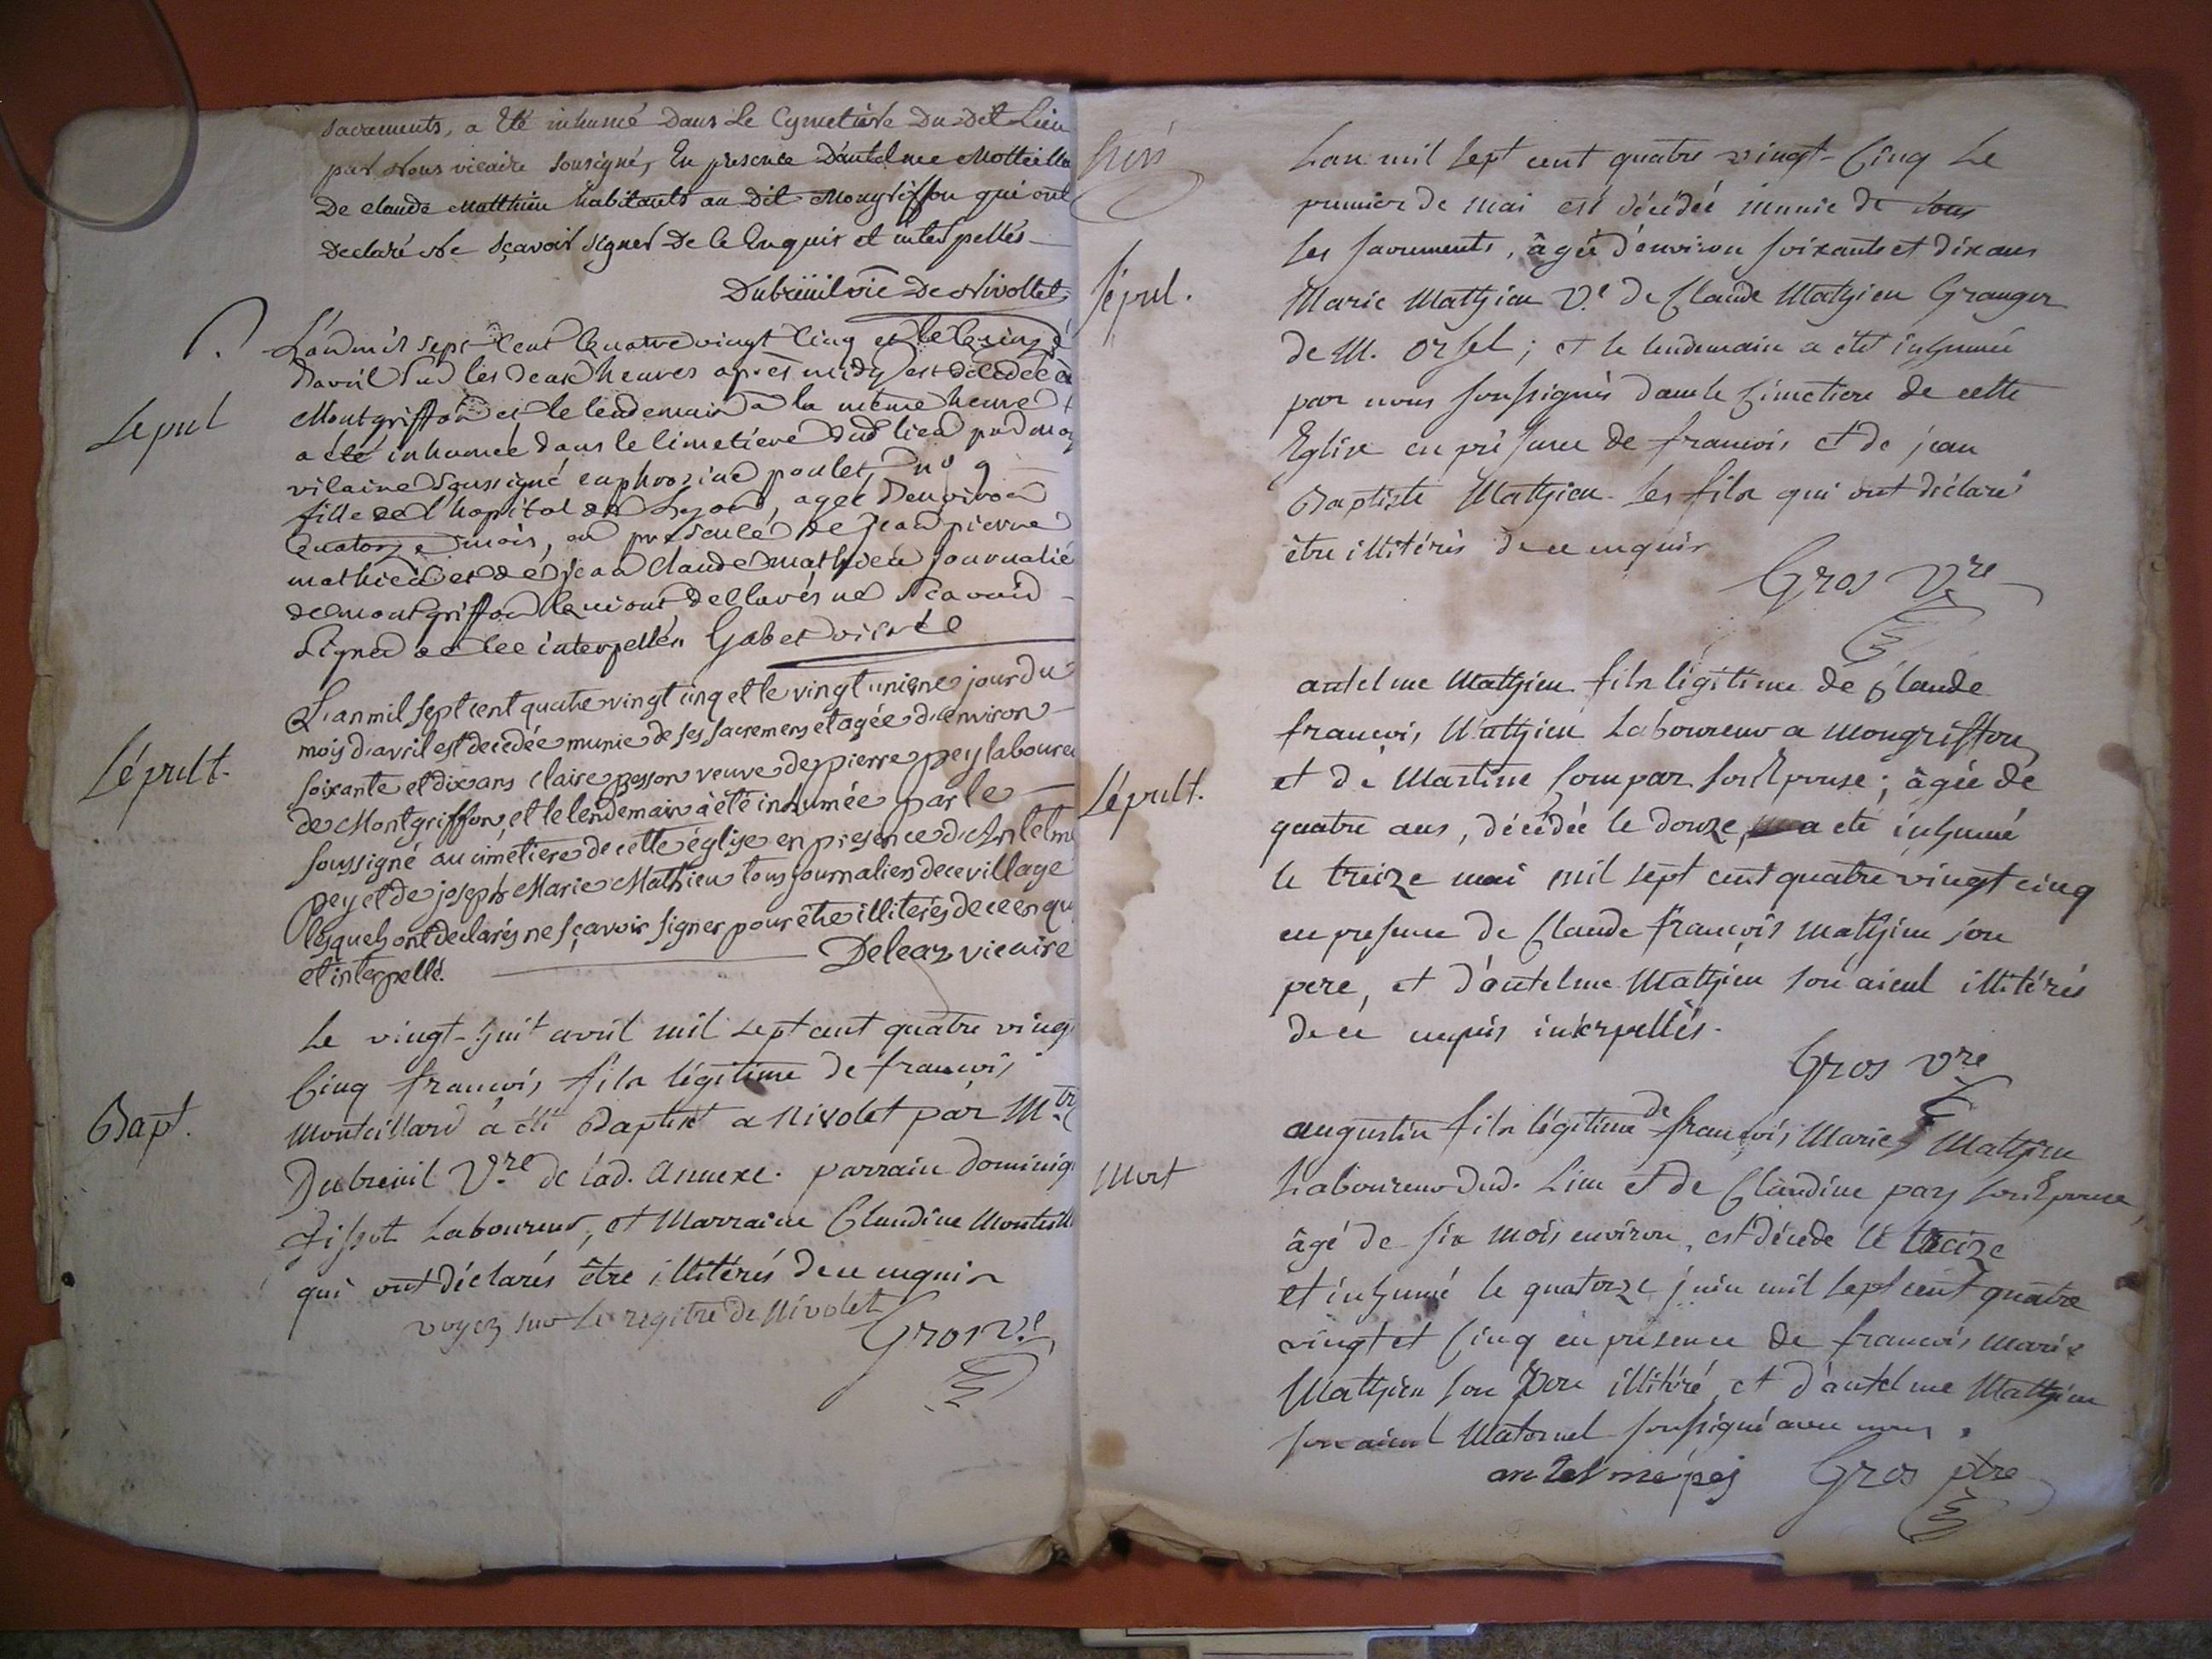 sacraments, a été inhumé Dans Le Cymetière Du Dit Lieu
par Nous vicaire sousigné, En presence D'antelme
De claude Matthieu habitants au Dit Mongriffon qui ont
Declaré Ne sçavoir signer De ce Enquis et interpellés
Dubreüil vic De Nivollet
Sepul
L'an mil sept Cent quatre vingt Cinq et le quinze
d'avril sur les deux heures après midy est décédée à
Montgriffon et le lendemain à la même heure
a été inhumée dans le Cimetière dud lieu par moy
vicaire soussigné euphrosine poulet, n° 9
fille de l'hopital de Lyon, agée d'environ
quatorze mois, en présence de jean pierre
mathieu et de jean Claude mathieu journalié
de montgriffon qui ont déclarés ne sçavoir
signer de ce interpellés Gabet vicaire
Sépult.
L'an mil sept cent quatre vingt cinq et le vingt unieme jour du
mois d'avril est decedée munie de ses sacremens et agée d'environ
soixante et dix ans claire pesson veuve de pierre pey laboureu
de Montgriffon, et le lendemain à été inhumée par le
soussigné au cimetiere de cette église en presence d'Antelme
pey et de joseph Marie Mathieu tous journaliers de ce village
lesquels ont declarés ne sçavoir signer pour être illiterés de ce enqu
et interpellé. Deleaz vicaire
Bapt.
Le vingt-huit avril mil sept cent quatre ving
Cinq francois fils légitime de francois
Monteillard a été Baptisé a Nivolet par M.tre
Dubreuil V.re de lad. Annexe. parrain Dominiq
Tissot Laboureur, et Marraine Claudine Monteill
qui ont déclarés être illitérés de ce enquis
voyez sur Le regitre de Nivolet
Gros V.e
Sépul.
Lan mil sept cent quatre vingt-Cinq Le
premier de mai est décédée munie de tous
ses sacrements, âgée d'environ soixante et dix ans
Marie Mathieu V.e de Claude Mathieu Granger
de M. Orsel; et le lendemain a été inhumée
par nous soussignés dans le Cimetiere de cette
Eglise en présence de francois et de jean
Baptiste Mathieu ses fils qui ont déclaré
être illitérés de ce enquis
Gros V.re
Sépult.
antelme Mathieu fils légitime de Claude
francois Mathieu Laboureur a Mongriffon
et de Martine son Epouse; âgée de
quatre ans, décédée le douze, a été inhumé
le treize mai mil sept cent quatre vingt cinq
en presence de Claude francois Mathieu son
pere, et d'antelme Mathieu son aieul illitérés
de ce enquis interpellés.
Gros V.re
Mort
augustin fils légitime de francois Marie Mathieu
Laboureur dud. Lieu et de Claudine pay son Epouse,
âgé de six mois environ, est décédé le treize
et inhumé le quatorze juin mil sept cent quatre
vingt et Cinq en présence de francois Marie
Mathieu son Pere illitéré, et d'antelme Mathieu
son aieul Maternel soussigné avec nous.
antelme pej Gros ptre